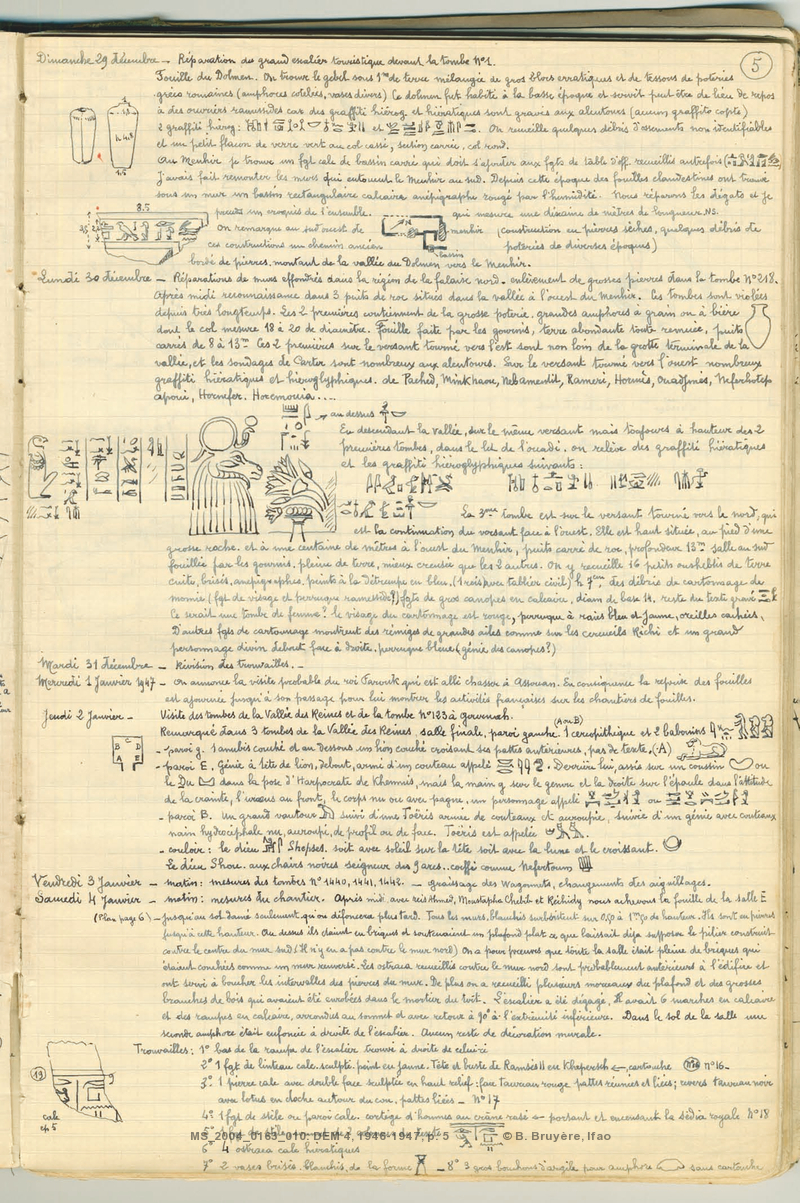 5
Dimanche 29 décembre — Réparation du grand escalier touristique devant la tombe N°1.
Fouille du Dolmen. On trouve le gebel sous 1m de terre mélangée de gros blocs erratiques et de tessons de poteries
gréco romaines (amphores cotelées, vases divers) Ce dolmen fut habité à la basse époque et servit peut être de lieu de repos
à des ouvriers ramessides car des graffiti hiérog et hiératiques sont gravés aux alentours (aucun graffito copte)
2 graffiti hiérog: et . On recueille quelques débris d'ossements non identifiables
et un petit flacon de verre vert au col cassé, section carrée, col rond.
Au Menhir je trouve un fgt calc de bassin carré qui doit s'ajouter aux fgts de table d'off recueillis autrefois
J'avais fait remonter les murs qui entourent le Menhir au sud. Depuis cette époque des fouilles clandestines ont trouvé
sous un mur un bassin rectangulaire calcaire anépigraphe rongé par l'humidité. Nous réparons les dégâts et je
8.5
prends un croquis de l'ensemble. qui mesure une dizaine de mètres de longueur NS.
On remarque au sud ouest de menhir (construction en pierres sèches, quelques débris de
ces constructions un chemin ancien bassin poteries de diverses époques)
bordé de pierres, montant de la vallée du Dolmen vers le Menhir.
Lundi 30 décembre — Réparations de murs effondrés dans la région de la falaise nord. enlèvement de grosses pierres dans la tombe N°218.
Après midi reconnaissance dans 3 puits de roc situés dans la vallée à l'ouest du Menhir. Ces tombes sont violées
depuis très longtemps. Les 2 premières contiennent de la grosse poterie. grandes amphores à grain ou à bière
dont le col mesure 18 à 20 de diamètre. Fouille faite par les gournis, terre abondante toute remuée, puits
carrés de 8 à 13m. Ces 2 premières sur le versant tourné vers l'est sont non loin de la grotte terminale de la
vallée, et les sondages de Carter sont nombreux aux alentours. Sur le versant tourné vers l'ouest nombreux
graffiti hiératiques et hiéroglyphiques. de Pached, Minkhaou, Nebamentit, Rameri, Hormès, Ouadjmès, Neferhotep
apoui, Hornefer. Horemouia....
au dessus
En descendant la vallée, sur le même versant mais toujours à hauteur des 2
premières tombes, dans le lit de l'ouadi. on relève des graffiti hiératiques
et les graffiti hiéroglyphiques suivants:
La 3eme tombe est sur le versant tourné vers le nord, qui
est la continuation du versant face à l'ouest. Elle est haut située, au pied d'une
grosse roche. et à une centaine de mètres à l'ouest du Menhir, puits carré de roc, profondeur 13m salle au sud
fouillée par les gournis. pleine de terre, mieux creusée que les 2 autres. On y recueille 16 petits oushebtis de terre
cuite, brisés, anépigraphes. peints à la détrempe en bleu. (1 reis avec tablier civil) h 7cm. des débris de cartonnage de
momie (fgt de visage et perruque ramesside?) fgts de gros canopes en calcaire, diam de base 14. reste du texte gravé
Ce serait une tombe de femme? le visage du cartonnage est rouge, perruque à raies bleu et jaune, oreilles cachées.
D'autres fgts de cartonnage montrent des rémiges de grandes ailes comme sur les cercueils Richi et un grand
personnage divin debout face à droite. perruque bleue (génie des canopes?)
Mardi 31 décembre — Révision des trouvailles. —
Mercredi 1 Janvier 1947 — On annonce la visite probable du roi Farouk qui est allé chasser à Assouan. En conséquence la reprise des fouilles
est ajournée jusqu'à son passage pour lui montrer les activités françaises sur les chantiers de fouilles.
Jeudi 2 Janvier — Visite des tombes de la Vallée des Reines et de la tombe N°123 à Gournah.
(A ou B)
Remarqué dans 3 tombes de la Vallée des Reines. salle finale, paroi gauche. 1 cercopithèque et 2 babouins
— paroi g. 1 anubis couché et au dessous un lion couché croisant ses pattes antérieures, pas de texte. (A)
B C D
A E
— paroi E. Génie à tête de lion, debout, armé d'un couteau appelé . Derrière lui, assis sur un coussin ou
le Du dans la pose d'Harpocrate de Khemnis, mais la main g sur le genou et la droite sur l'épaule dans l'attitude
de la crainte, l'uraeus au front, le corps nu ou avec pagne, un personnage appelé ou
— paroi B. Un grand vautour suivi d'une Toëris armée de couteaux et accroupie, suivie d'un génie avec couteaux
nain hydrocéphale nu, accroupi, de profil ou de face. Toëris est appelée
— couloir: le dieu Shepses. soit avec soleil sur la tête soit avec la lune et le croissant.
Le dieu Shou. aux chairs noires seigneur des 2 ares.. coiffé comme Nefertoum
Vendredi 3 Janvier — matin: mesures des tombes N° 1440, 1441, 1442. — graissage des Wagonnets, changements des aiguillages.
Samedi 4 Janvier — matin: mesures du chantier. Après midi, avec reis Ahmed, Moustapha Chebit et Rechidy nous achevons la fouille de la salle E
(Plan page 6) — jusqu'au sol damé seulement, qu'on défoncera plus tard. Tous les murs, blanchis subsistent sur 0,50 à 1m50 de hauteur. Ils sont en pierres
jusqu'à cette hauteur. Au dessus ils étaient en briques et soutenaient un plafond plat ce que laissait déjà supposer le pilier construit
contre le centre du mur sud (Il n'y en a pas contre le mur nord) On a pour preuves que toute la salle était pleine de briques qui
étaient couchées comme un mur renversé. Les ostraca recueillis contre le mur nord sont probablement antérieurs à l'édifice et
ont servi à boucher les intervalles des pierres du mur. De plus on a recueilli plusieurs morceaux du plafond et des grosses
branches de bois qui avaient été enrobées dans le mortier du toit. L'escalier a été dégagé, Il avait 6 marches en calcaire
et des rampes en calcaire, arrondies au sommet et avec retour à 90° à l'extrémité inférieure. Dans le sol de la salle une
seconde amphore était enfoncée à droite de l'escalier. Aucun reste de décoration murale.
Trouvailles: 1° bas de la rampe de l'escalier trouvé à droite de celui-ci
2° 1 fgt de linteau calc. sculpté. peint en jaune. Tête et buste de Ramsès II en Khepersch ←, cartouche N°16—
3° 1 pierre calc avec double face sculptée en haut relief: face Taureau rouge, pattes réunies et liées; revers taureau noir
avec lotus en cloche autour du cou, pattes liées — N°17
4° 1 fgt de stèle ou paroi calc. cortège d'hommes au crâne rasé ← portant et encensant la sedia royale N°18
19
calc
ep 5
6° 4 ostraca calc hiératiques
7° 2 vases brisés, blanchis, de la forme — 8° 3 gros bouchons d'argile pour amphore sans cartouche
MS_2004_0163_010: DEM 4, 1946-1947, p. 5 © B. Bruyère, Ifao